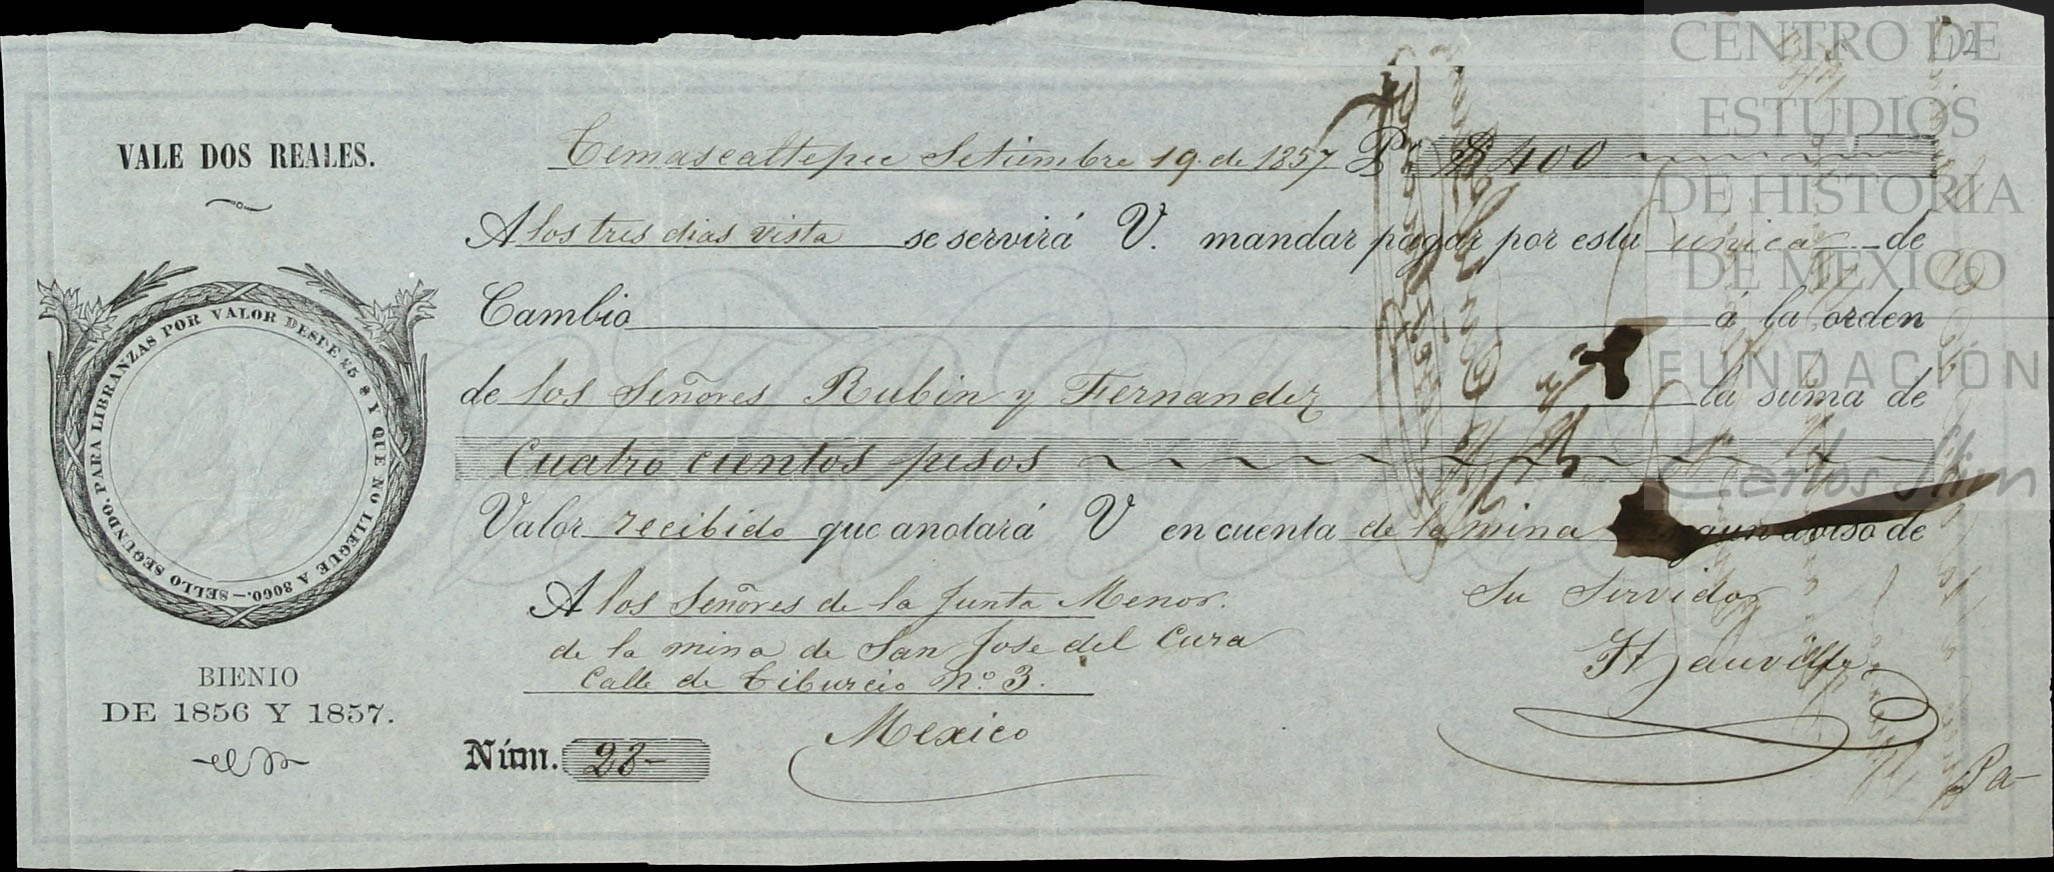 VALE DOS REALES.
Temascaltepec Setiembre 19. de 1857 Pr. $ 400
A los tres dias vista se servirá V. mandar pagar por esta unica de
Cambio á la orden
de los Señores Rubin y Fernandez la suma de
Cuatro cientos pesos
Valor recibido que anotará V en cuenta de la mina segun aviso de
A los Señores de la Junta Menor.
de la mina de San Jose del Cura
Calle de Tiburcio No. 3.
Mexico
Su Servidor
Núm. 28-
PARA LIBRANZAS POR VALOR DESDE 25 $ Y QUE NO LLEGUE A 3000.—SELLO SEGUNDO.
BIENIO
DE 1856 Y 1857.
Pa-
CENTRO DE
ESTUDIOS
DE HISTORIA
DE MEXICO
FUNDACIÓN
Carlos Slim